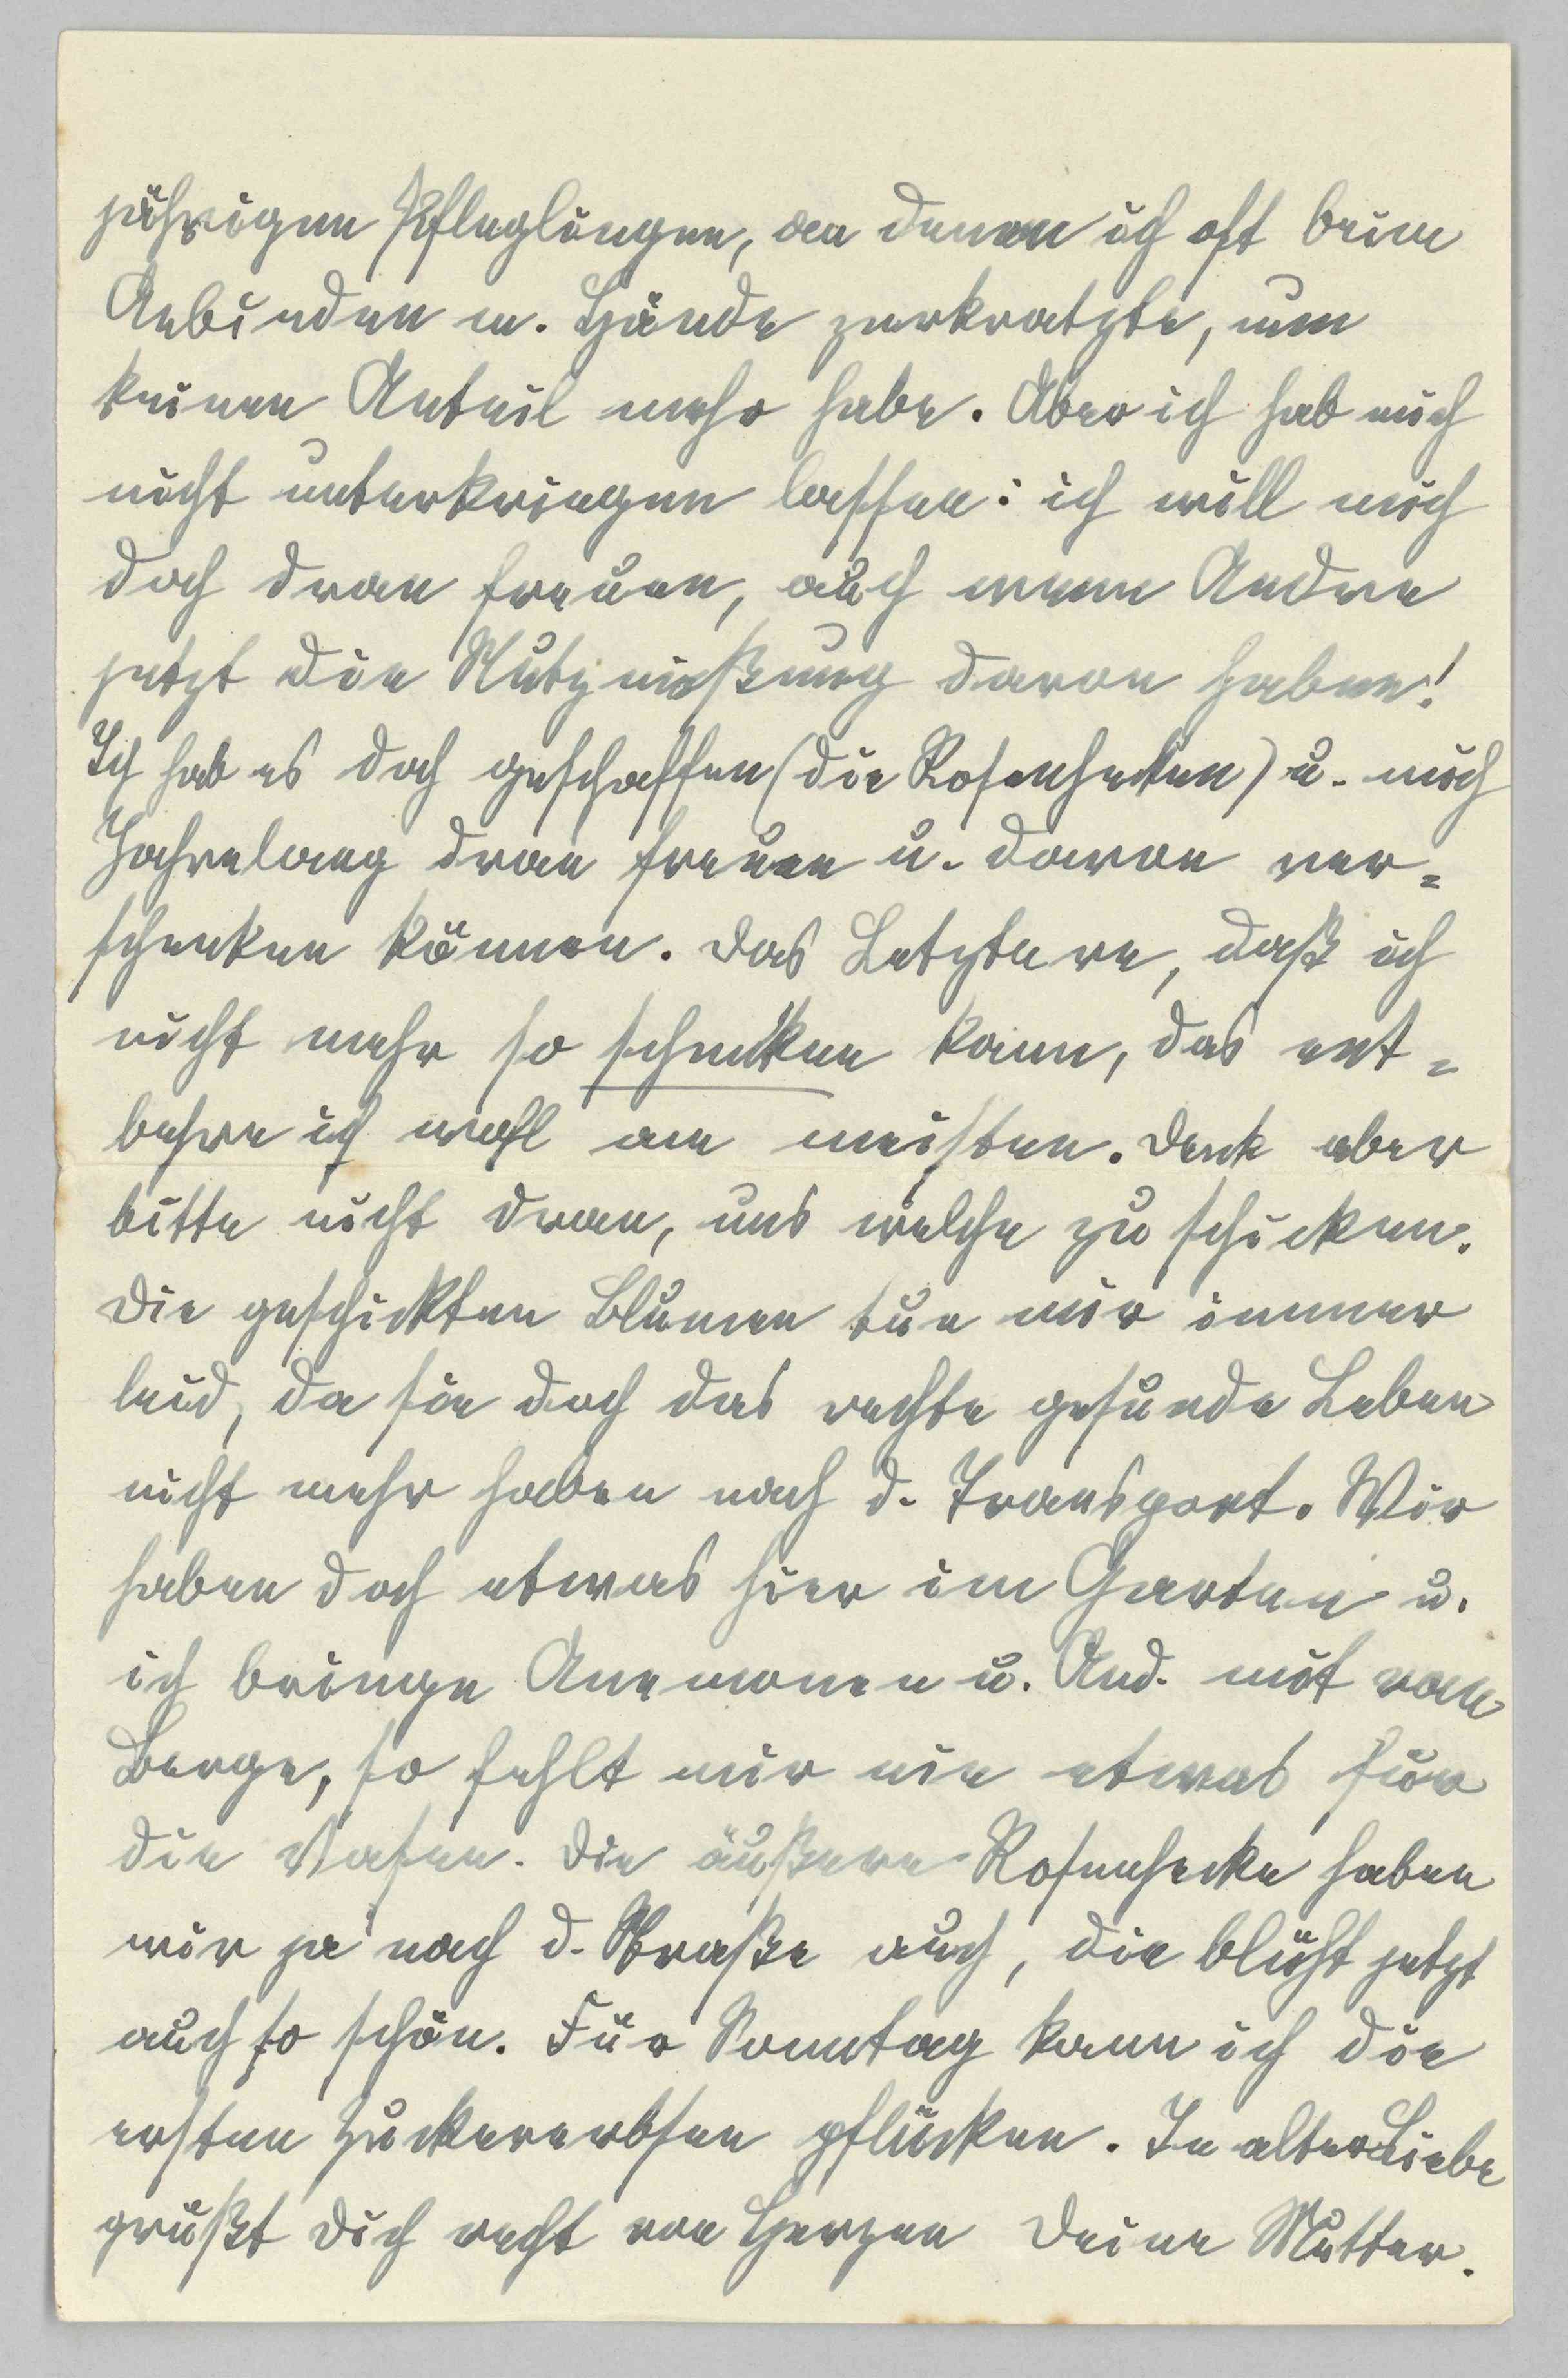 jährigen Pfleglingen, an denen ich oft beim
Anbinden m. Hände zerkratzte, nun
keinen Anteil mehr habe. Aber ich hab mich
nicht unterkriegen lassen: ich will mich
doch dran freuen, auch wenn Andre
jetzt die Nutznießung davon haben!
Ich hab es doch geschaffen (die Rosenhecken) u. mich
Jahrelang dran freuen u. davon ver=
schenken können. Das Letztere, daß ich
nicht mehr so schenken kann, das ent=
behre ich wohl am meisten. Denk aber
bitte nicht dran, uns welche zu schicken.
Die geschickten Blumen tun mir immer
leid, da sie doch das rechte gesunde Leben
nicht mehr haben nach d. Transport. Wir
haben doch etwas hier im Garten u.
ich bringe Anemonen u. And. mit vom
Berge, so fehlt mir nie etwas für
die Vasen. Die äußere Rosenhecke haben
wir ja nach d. Straße auch, die blüht jetzt
auch so schön. Für Sonntag kann ich die
ersten Zuckererbsen pflücken. In alter Liebe
grüßt Dich recht von Herzen Deine Mutter.